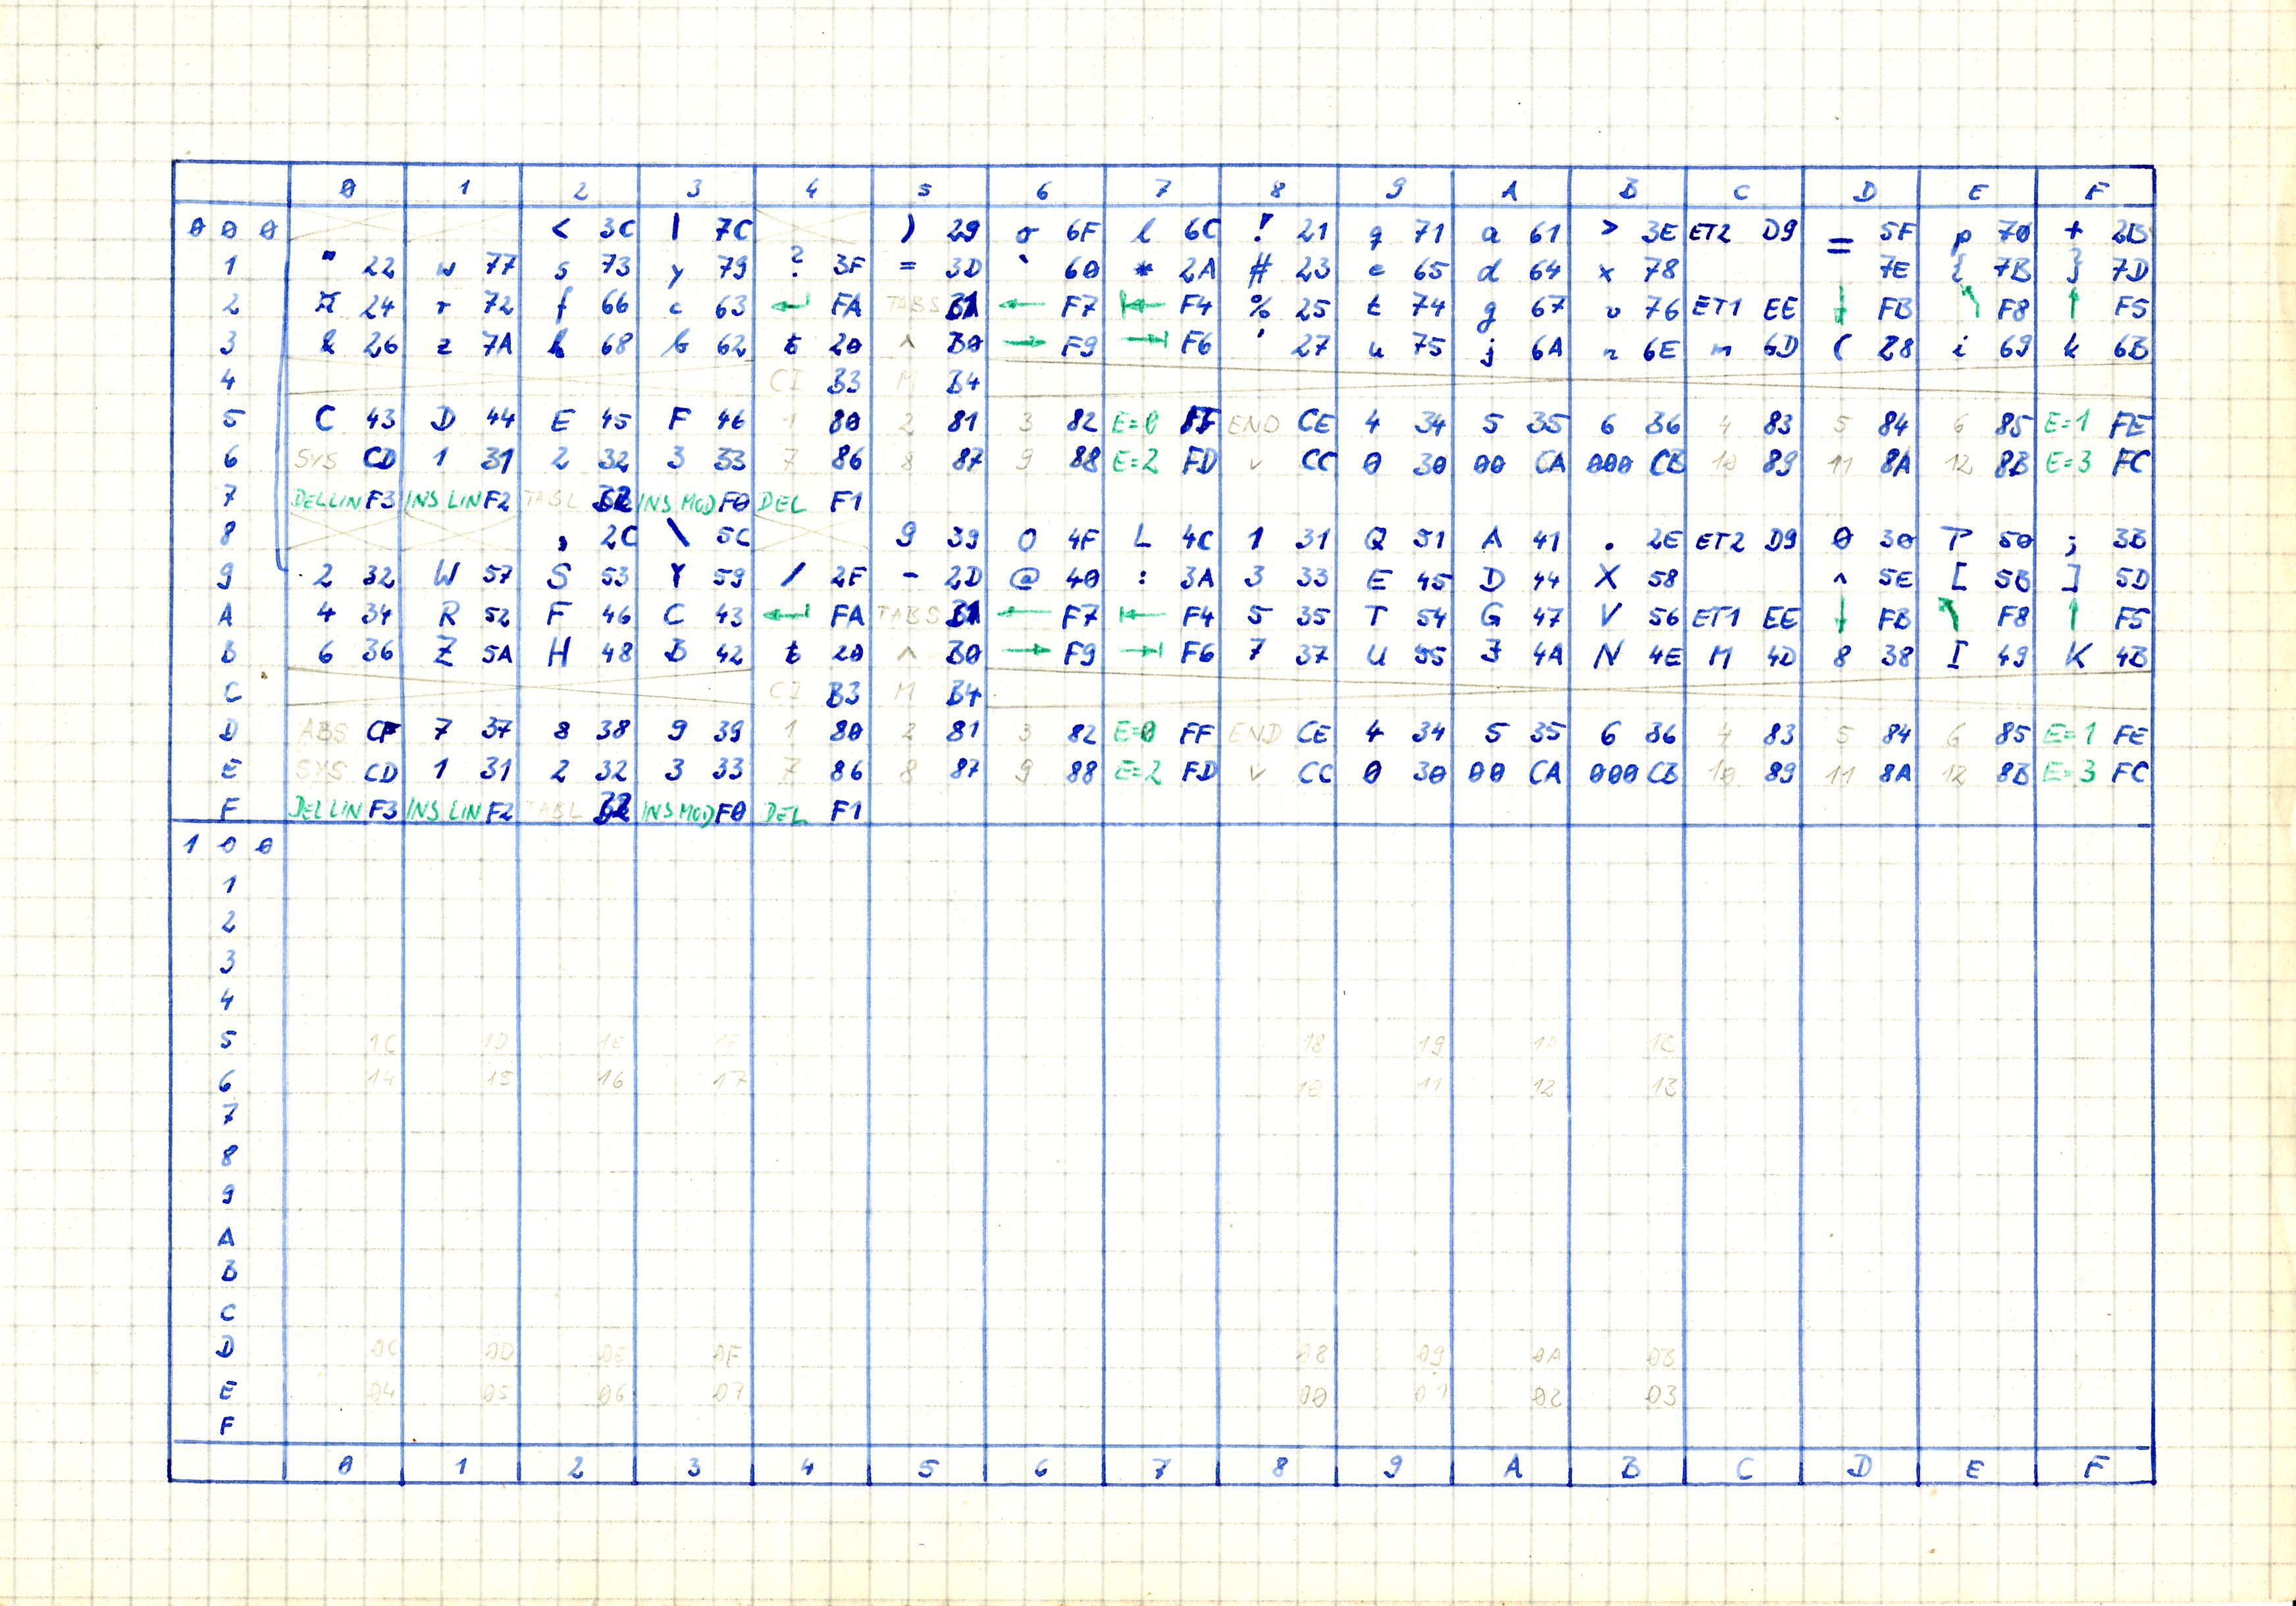 0 1 2 3 4 5 6 7 8 9 A B C D E F
000 < 3C | 7C ) 29 o 6F l 6C ! 21 q 71 a 61 > 3E ET2 D9 = 5F p 70 + 2B
1 " 22 w 77 s 73 y 79 ? 3F = 3D ` 60 * 2A # 23 e 65 d 64 x 78 7E { 7B } 7D
2 ¤ 24 r 72 f 66 c 63 ↵ FA TABS B1 ← F7 |← F4 % 25 t 74 g 67 v 76 ET1 EE ↓ FB ↖ F8 ↑ F5
3 & 26 z 7A h 68 b 62 ƀ 20 ^ B0 → F9 →| F6 ' 27 u 75 j 6A n 6E m 6D ( 28 i 69 k 6B
4 CI B3 M B4
5 C 43 D 44 E 45 F 46 1 80 2 81 3 82 E=0 FF END CE 4 34 5 35 6 36 4 83 5 84 6 85 E=1 FE
6 SYS CD 1 31 2 32 3 33 7 86 8 87 9 88 E=2 FD v CC 0 30 00 CA 000 CB 10 89 11 8A 12 8B E=3 FC
7 DEL LIN F3 INS LIN F2 TABL B2 INS MOD F0 DEL F1
8 , 2C \ 5C 9 39 O 4F L 4C 1 31 Q 51 A 41 . 2E ET2 D9 0 30 P 50 ; 3B
9 2 32 W 57 S 53 Y 59 / 2F - 2D @ 40 : 3A 3 33 E 45 D 44 X 58 ^ 5E [ 5B ] 5D
A 4 34 R 52 F 46 C 43 ↵ FA TABS B1 ← F7 |← F4 5 35 T 54 G 47 V 56 ET1 EE ↓ FB ↖ F8 ↑ F5
B 6 36 Z 5A H 48 B 42 ƀ 20 ^ B0 → F9 →| F6 7 37 U 55 J 4A N 4E M 4D 8 38 I 49 K 4B
C CI B3 M B4
D ABS CF 7 37 8 38 9 39 1 80 2 81 3 82 E=0 FF END CE 4 34 5 35 6 36 4 83 5 84 6 85 E=1 FE
E SYS CD 1 31 2 32 3 33 7 86 8 87 9 88 E=2 FD v CC 0 30 00 CA 000 CB 10 89 11 8A 12 8B E=3 FC
F DEL LIN F3 INS LIN F2 TABL B2 INS MOD F0 DEL F1
100
1
2
3
4
5 1C 1D 1E 1F 18 19 1A 1B
6 14 15 16 17 10 11 12 13
7
8
9
A
B
C
D 0C 0D 0E 0F 08 09 0A 0B
E 04 05 06 07 00 01 02 03
F
0 1 2 3 4 5 6 7 8 9 A B C D E F